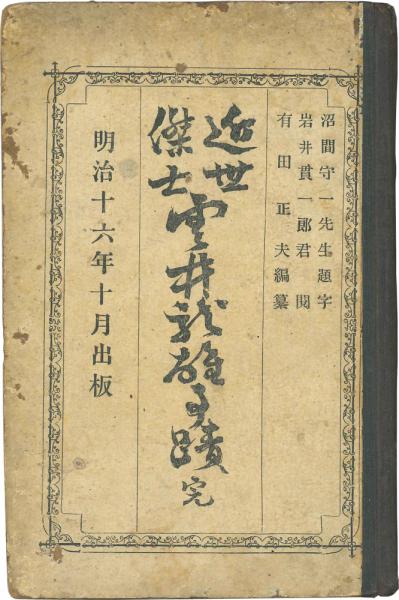 沼間守一先生題字
岩井貫一郎君閲
有田正夫編纂
近世
傑士
雲井龍雄事蹟完
明治十六年十月出板